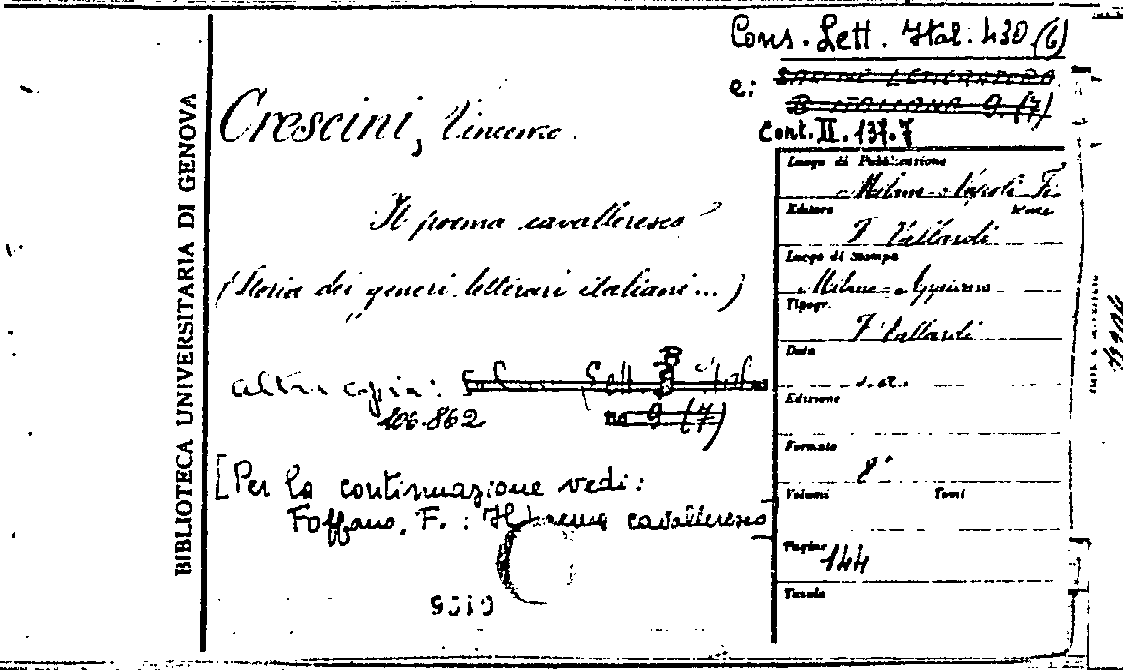 Cons. Lett. Ital. 430 (6)
e:
9. (7)
Cont. II. 137.7
BIBLIOTECA UNIVERSITARIA DI GENOVA
Crescini, Vincenzo.
Il poema cavalleresco
(Storia dei generi letterari italiani...)
altra copia:
106.862
no 9 (7)
[Per la continuazione vedi:
Foffano, F. : Il poema cavalleresco
Luogo di Pubblicazione
Milano - Napoli
Editore
F. Vallardi
Luogo di stampa
Milano
Tipogr.
F. Vallardi
Data
s. a.
Edizione
Formato
8°
Volumi Tomi
Pagine
144
Tavole